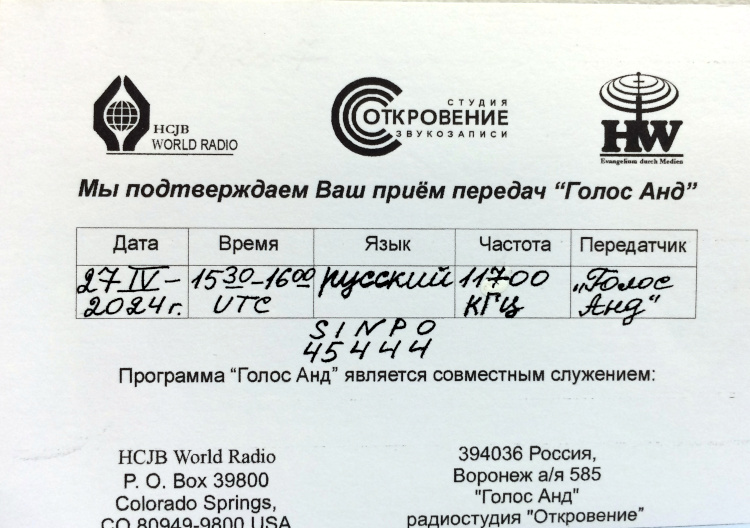 HCJB
WORLD RADIO
СТУДИЯ
ОТКРОВЕНИЕ
ЗВУКОЗАПИСИ
HW
Evangelium durch Medien
Мы подтверждаем Ваш приём передач “Голос Анд”
Дата Время Язык Частота Передатчик
27 IV – 15 30 – 16 00 русский 11700 „Голос
2024 г. UTC кГц Анд“
S I N P O
4 5 4 4 4
Программа “Голос Анд” является совместным служением:
HCJB World Radio
P. O. Box 39800
Colorado Springs,
CO 80949-9800 USA
394036 Россия,
Воронеж а/я 585
"Голос Анд"
радиостудия "Откровение"